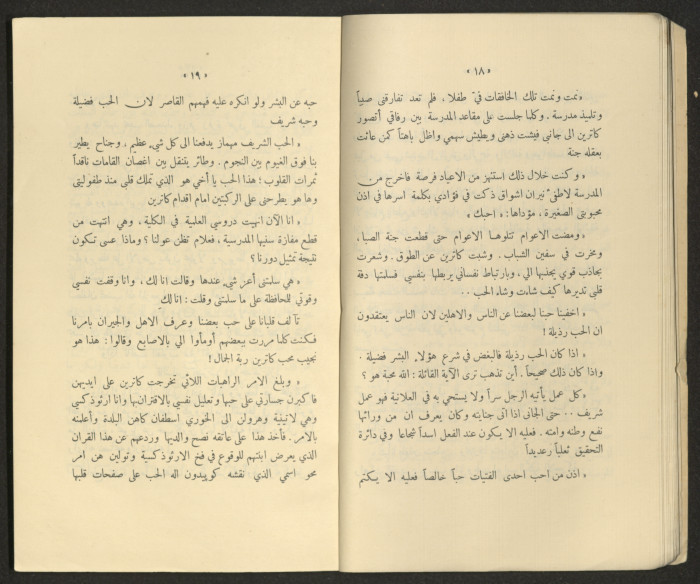 « ١٨ »
« نمت ونمت تلك الخافقات فيّ طفلا ، فلم تعد تفارقني صبياً
وتلميذ مدرسة . وكلما جلست على مقاعد المدرسة بين رفاقي أتصور
كاترين الى جانبي فيشت ذهني ويطيش سهمي واظل باهتاً كمن عاثت
بعقله جنة
« وكنت خلال ذلك استنهز من الاعياد فرصة فاخرج من
المدرسة لاطفئ نيران اشواق ذكت في فؤادي بكلمة اسرها في اذن
محبوبتي الصغيرة ، مؤداها : « احبك »
« ومضت الاعوام تتلوها الاعوام حتى قطعت جنة الصبا ،
ومخرت في سفين الشباب . وشبت كاترين عن الطوق . وشعرت
بجاذب قوي يجذبها الي ، وبارتباط نفساني يربطها بنفسي فسلمتها دفة
قلبي تديرها كيف شاءت وشاء الحب ..
« اخفينا حبنا لبعضنا عن الناس والاهلين لان الناس يعتقدون
ان الحب رذيلة !
« اذا كان الحب رذيلة فالبغض في شرع هؤلاء البشر فضيلة .
واذا كان ذلك صحيحاً . أين تذهب ترى الآية القائلة : الله محبة هو ؟
« كل عمل يأتيه الرجل سراً ولا يستحي به في العلانية فهو عمل
شريف ... حتى الجاني اذا اتى جنايته وكان يعرف ان من ورائها
نفع وطنه وامته . فعليه الا يكون عند الفعل اسداً شجاعا وفي دائرة
التحقيق ثعلباً رعديداً
« اذن من احب احدى الفتيات حباً خالصاً فعليه الا يتكتم
« ١٩ »
حبه عن البشر ولو انكره عليه فهمهم القاصر لان الحب فضيلة
وحبه شريف
« الحب الشريف مهماز يدفعنا الى كل شيء عظيم ، وجناح يطير
بنا فوق الغيوم بين النجوم . وطائر ينتقل بين اغصان القامات ناقداً
ثمرات القلوب ؛ هذا الحب يا أخي هو الذي تملك قلبي منذ طفوليتي
وها هو يطرحني على الركبتين امام اقدام كاترين
« انا الآن انهيت دروسي العلمية في الكلية ، وهي انتهت من
قطع مفازة سنيها المدرسية ، فعلام تظن عولنا ؟ وماذا عسى تكون
نتيجة تمثيل دورنا ؟
« هي سلمتني أعز شيء عندها وقالت انا لك ، وانا وقفت نفسي
وقوتي للمحافظة على ما سلمتني وقلت : انا لكِ
تآلف قلبانا على حب بعضنا وعرف الاهل والجيران بامرنا
فكنت كلما مررت ببعضهم أومأوا الي بالاصابع وقالوا : هذا هو
نجيب محب كاترين ربة الجمال !
« وبلغ الامر الراهبات اللائي تخرجت كاترين على ايديهن
فاكبرن جسارتي على حبها وتعليل نفسي بالاقتران بها وانا ارثوذكسي
وهي لاتينية وهرولن الى الخوري اسطفان كاهن البلدة وأعلمنه
بالامر . فأخذ هذا على عاتقه نصح والديها وردعهم عن هذا القران
الذي يعرض ابنتهم للوقوع في فخ الارثوذكسية وتولين هن امر
محو اسمي الذي نقشه كوپيدون اله الحب على صفحات قلبها